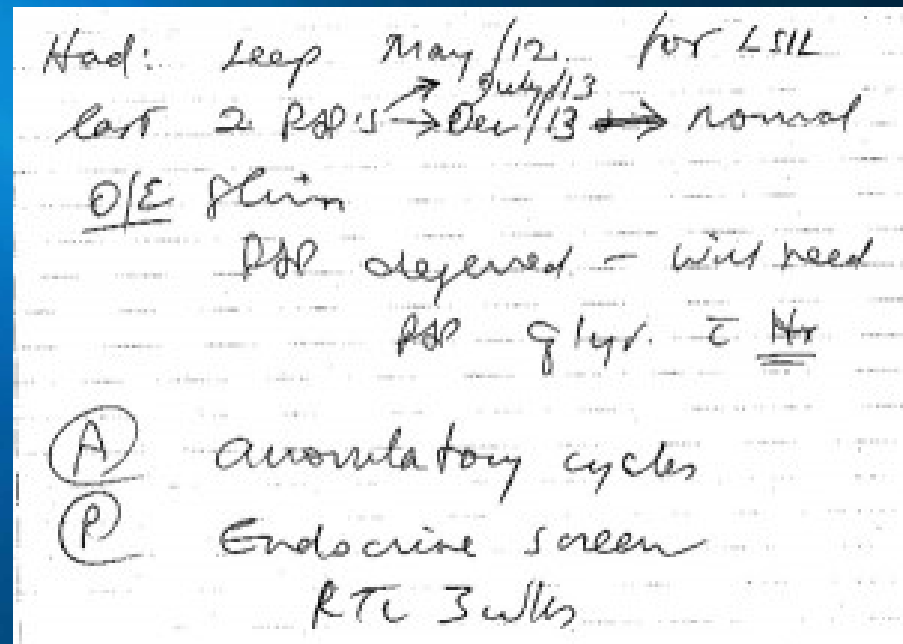 Had: Leep May/12 for LSIL
July/13
last 2 PAP's → Dec/13 → normal
O/E Slim
PAP deferred - will need
PAP q 1yr. c̄
A anovulatory cycles
P Endocrine screen
RTC 3 wks